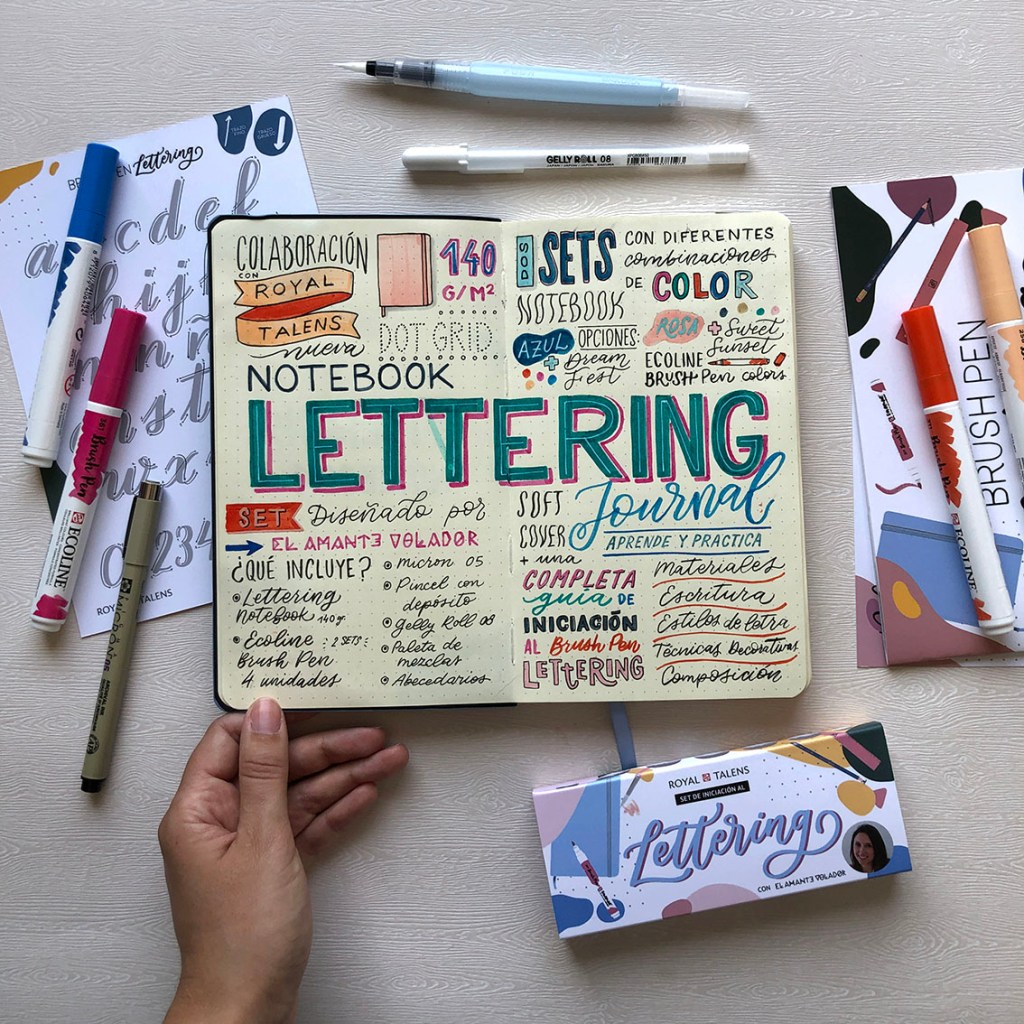 Lettering
a b c d e f
GELLY ROLL 08
Brush Pen
ECOLINE
ROYAL TALENS
COLABORACIÓN
CON
ROYAL
TALENS
nueva
140
G/M²
DOT GRID
NOTEBOOK
DOS SETS
CON DIFERENTES
combinaciones
DE COLOR
NOTEBOOK
OPCIONES:
AZUL
+ Dream
Fest
ROSA
+ Sweet
Sunset
ECOLINE
BRUSH Pen colors
LETTERING
Journal
APRENDE Y PRACTICA
SET Diseñado por
EL AMANTE VOLADOR
¿QUÉ INCLUYE?
Lettering
Notebook 140 gr
Ecoline : 2 SETS :
Brush Pen
4 unidades
micron 05
Pincel con
depósito
Gelly Roll 08
Paleta de
mezclas
Abecedarios
SOFT
COVER
+ una
COMPLETA
guía DE
INICIACIÓN
AL Brush Pen
LETTERING
Materiales
Escritura
Estilos de letra
Técnicas Decorativas
Composición
BRUSH PEN
ECOLINE
ROYAL TALENS
SET DE INICIACIÓN AL
Lettering
CON EL AMANTE VOLADOR